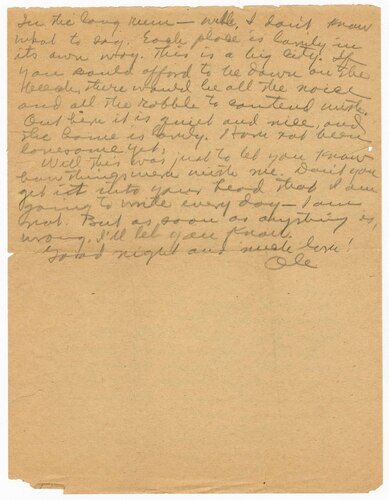 In the long run — well, I don't know
what to say. Each place is lovely in
its own way. This is a big city. If
you could afford to be down on the
beach, there would be all the noise
and all the rabble to contend with.
Out here it is quiet and nice, and
the home is lovely. Have not been
lonesome yet.
Well this was just to let you know
how things were with me. Don't you
get it into your head that I am
going to write every day — I am
not. But as soon as anything is
wrong, I'll let you know.
Good night and much love!
Ole